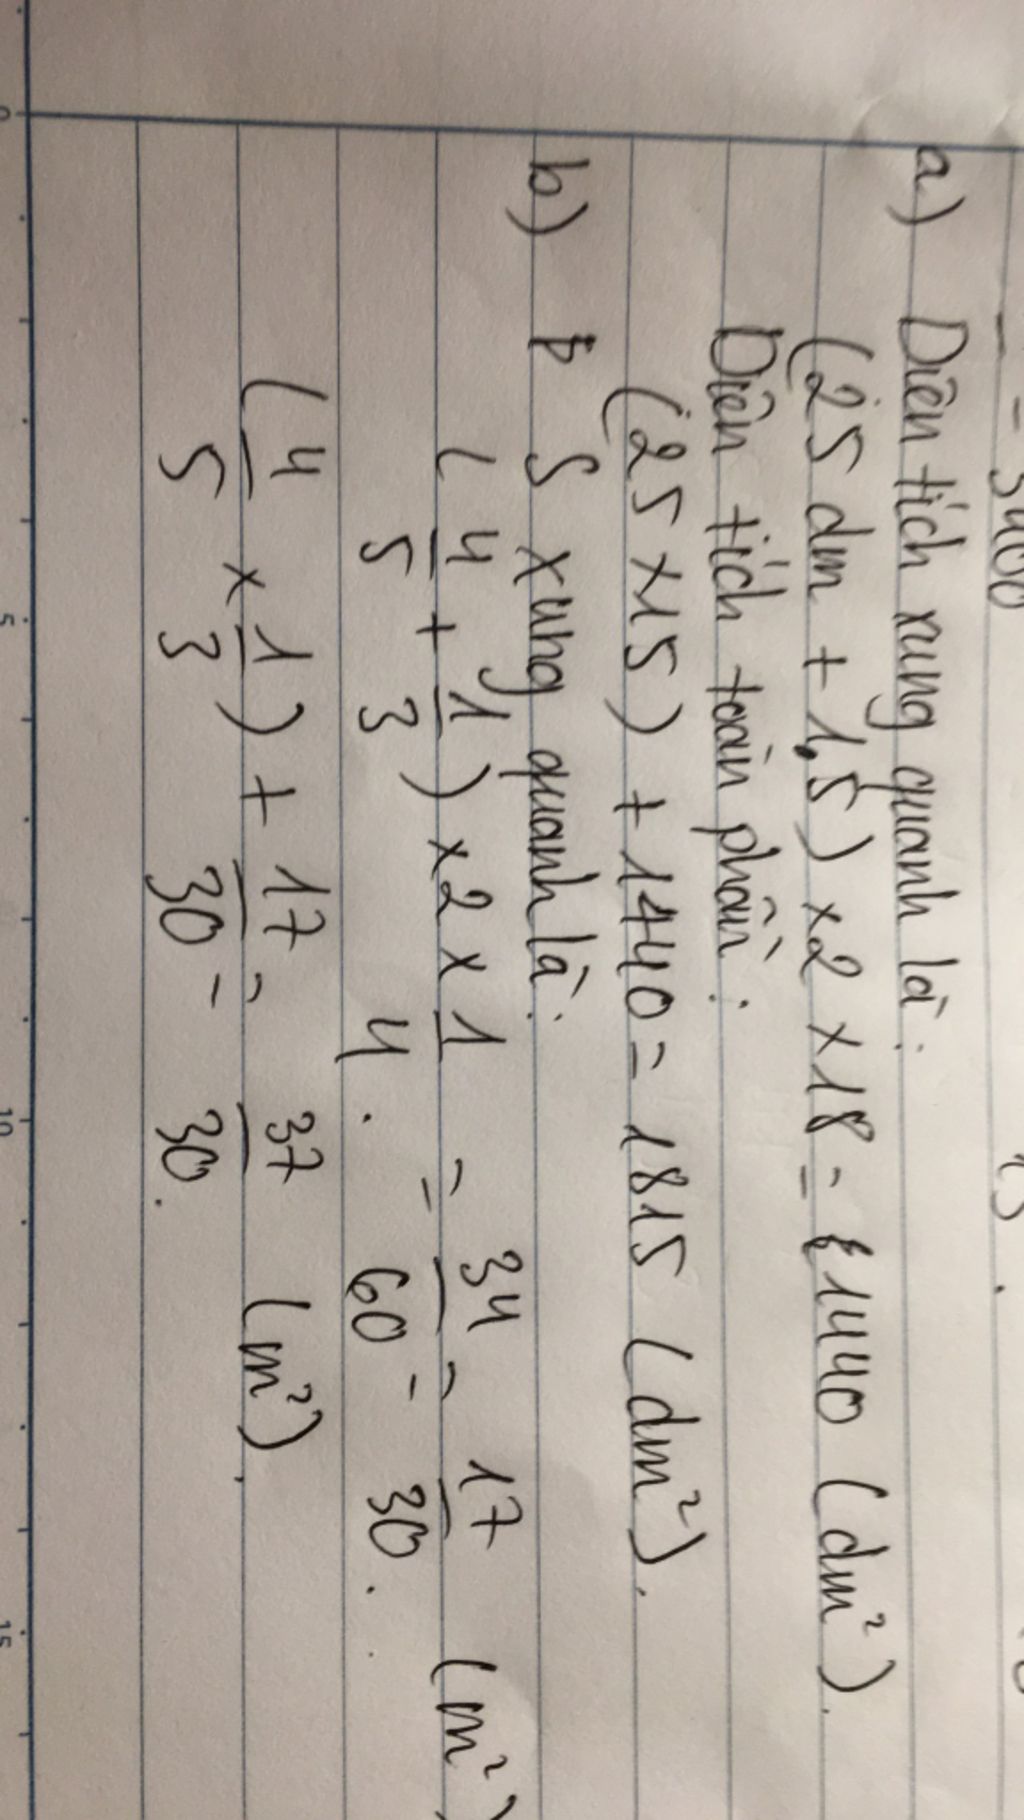 = 3400
a) Diện tích xung quanh là:
(25 dm + 1,5) x2 x18 = 1440 (dm²).
Diện tích toàn phần:
(25 x15) + 1440 = 1815 (dm²).
b) S xung quanh là:
( 4/5 + 1/3 ) x2 x 1/4 = 34/60 = 17/30 (m²)
( 4/5 x 1/3 ) + 17/30 = 37/30 (m²).
0 5 10 15